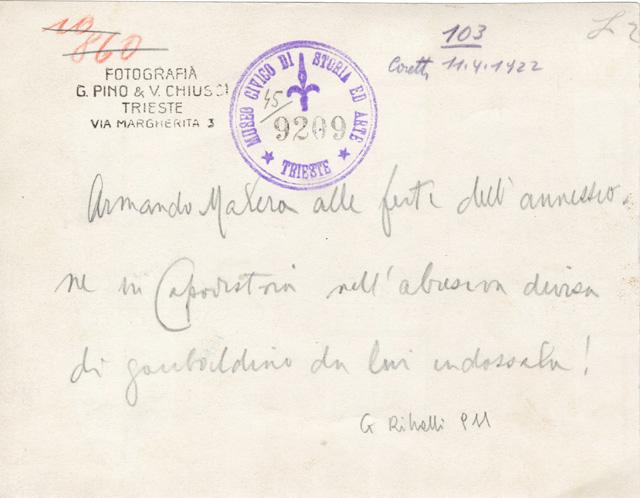 10
860
103
L 2
Coretti 11.4.1922
FOTOGRAFIA
G. PINO & V. CHIUSSI
TRIESTE
VIA MARGHERITA 3
MUSEO CIVICO DI STORIA ED ARTE
TRIESTE
45/
9209
Armando Matera alle feste dell'annessio-
ne in Capodistria nell'abusiva divisa
di garibaldino da lui indossata!
G